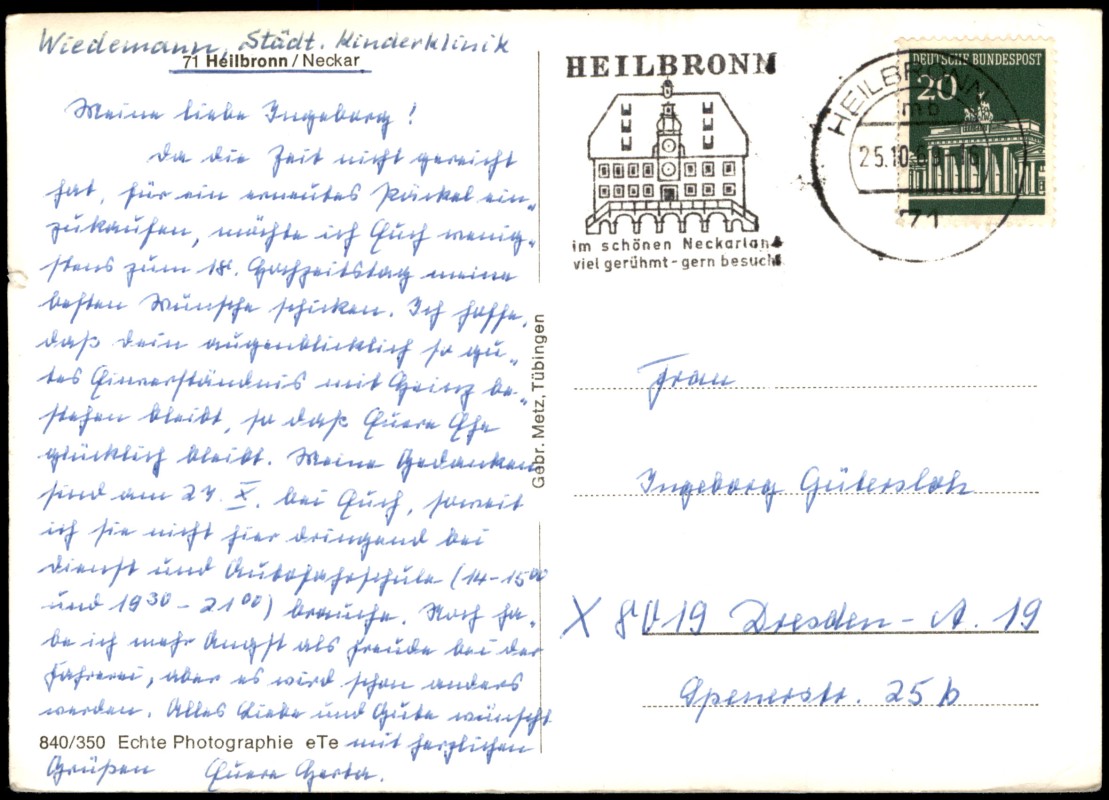 Wiedemann, Städt. Kinderklinik
71 Heilbronn / Neckar
Meine liebe Ingeborg!
Da die Zeit nicht gereicht
hat, für ein erneutes Päckel ein-
zukaufen, möchte ich Euch wenig-
stens zum 18. Hochzeitstag meine
besten Wünsche schicken. Ich hoffe,
daß dein augenblicklich so gu-
tes Einverständnis mit Heinz be-
stehen bleibt, so daß Euere Ehe
glücklich bleibt. Meine Gedanken
sind am 27. X. bei Euch, soweit
ich sie nicht hier dringend bei
Dienst und Autofahrschule (14-15⁰⁰
und 19³⁰-21⁰⁰) brauche. Noch ha-
be ich mehr Angst als Freude bei der
Fahrerei, aber es wird schon anders
werden. Alles Liebe und Gute wünscht
mit herzlichen
Grüßen Euere Gerta.
840/350 Echte Photographie eTe
Gebr. Metz, Tübingen
HEILBRONN
im schönen Neckarland
viel gerühmt - gern besucht
HEILBRONN
mb
25.10.
71
DEUTSCHE BUNDESPOST
20
Frau
Ingeborg Gütersloh
X 8019 Dresden-A. 19
Spenerstr. 25 b